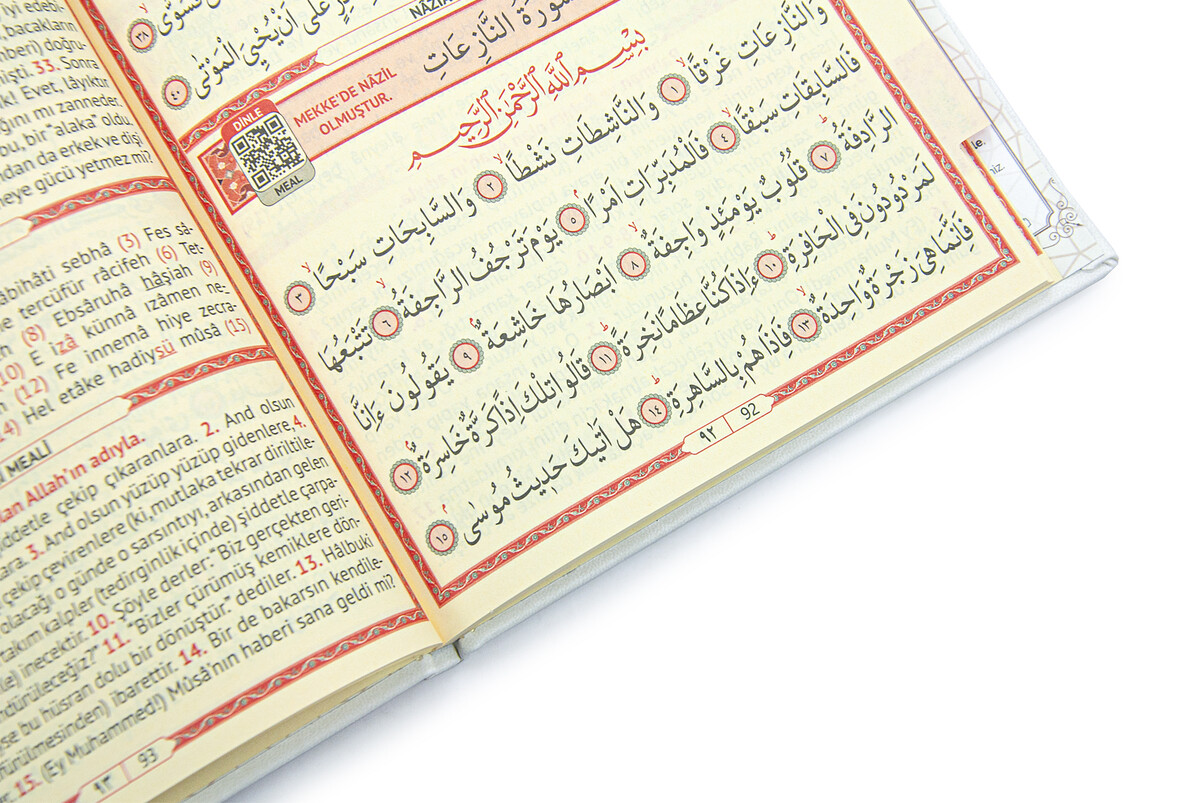 فَسَوّٰىۙ ﴿٣٨﴾
عَلٰٓى اَنْ يُحْيِيَ الْمَوْتٰى ﴿٤٠﴾
سُورَةُ النَّازِعَاتِ
MEKKE'DE NÂZİL
OLMUŞTUR.
DİNLE
MEAL
بِسْمِ اللّٰهِ الرَّحْمٰنِ الرَّحِيمِ
وَالنَّازِعَاتِ غَرْقًاۙ ﴿١﴾ وَالنَّاشِطَاتِ نَشْطًاۙ ﴿٢﴾ وَالسَّابِحَاتِ سَبْحًاۙ ﴿٣﴾
فَالسَّابِقَاتِ سَبْقًاۙ ﴿٤﴾ فَالْمُدَبِّرَاتِ اَمْرًاۢ ﴿٥﴾ يَوْمَ تَرْجُفُ الرَّاجِفَةُۙ ﴿٦﴾ تَتْبَعُهَا
الرَّادِفَةُۜ ﴿٧﴾ قُلُوبٌ يَوْمَئِذٍ وَاجِفَةٌۙ ﴿٨﴾ اَبْصَارُهَا خَاشِعَةٌۢ ﴿٩﴾ يَقُولُونَ ءَاِنَّا
لَمَرْدُودُونَ فِي الْحَافِرَةِۜ ﴿١٠﴾ ءَاِذَا كُنَّا عِظَامًا نَخِرَةًۜ ﴿١١﴾ قَالُوا تِلْكَ اِذًا كَرَّةٌ خَاسِرَةٌۢ ﴿١٢﴾
فَاِنَّمَا هِيَ زَجْرَةٌ وَاحِدَةٌۙ ﴿١٣﴾ فَاِذَا هُمْ بِالسَّاهِرَةِۜ ﴿١٤﴾ هَلْ اَتٰيكَ حَدِيثُ مُوسٰىۢ ﴿١٥﴾
٩٢ 92
iyi edebi-
bacakların
doğru-
33. Sonra
Evet, lâyıktır
ğını mı zanneder.
bu, bir "alaka" oldu.
ndan da erkek ve dişi
meye gücü yetmez mi?
âbihâti sebhâ (3) Fes sâ-
me tercüfür râcifeh (6) Tet-
(8) Ebsâruhâ hâşiah (9)
(10) E izâ künnâ ızâmen ne-
(12) Fe innemâ hiye zecra-
14) Hel etâke hadiysü mûsâ (15)
MEALİ
olan Allah'ın adıyla.
şiddetle çekip çıkaranlara. 2. And olsun
3. And olsun yüzüp yüzüp gidenlere, 4.
çekip çevirenlere (ki, mutlaka tekrar diriltile-
olacağı o günde o sarsıntıyı, arkasından gelen
takım kalpler (tedirginlik içinde) şiddetle çarpa-
inecektir. 10. Şöyle derler: "Biz gerçekten geri-
ndürüleceğiz?" 11. "Bizler çürümüş kemiklere dön-
ise bu hüsran dolu bir dönüştür." dediler. 13. Hâlbuki
ibarettir. 14. Bir de bakarsın kendile-
15. (Ey Muhammed!) Mûsâ'nın haberi sana geldi mi?
٩٣ 93